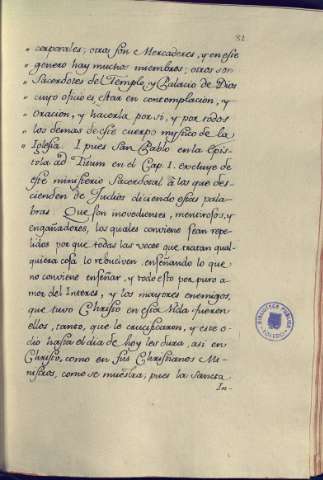 32
" corporales; otros son Mercaderes, y en este
" genero hay muchos miembros; otros son
" Sacerdotes del Temple, y Palacio de Dios
" cuyo oficio es estar en contemplacion, y
" oracion, y hacerla por si, y por todos
" los demas de este cuerpo mystico de la
" Iglesia. I pues San Pablo en la Epis-
tola ad Titum en el Cap. 1. excluye de
este ministerio Sacerdotal à los que des-
cienden de Judios diciendo estas pala-
bras Que son movedizes, mentirosos, y
engañadores, los quales conviene sean repe-
lidos por que todas las voces que tratan qual-
quiera cosa lo rebuelven enseñando lo que
no conviene enseñar, y todo esto por puro a-
mor del Interes, y los mayores enemigos,
que tuvo Christo en esta Vida fueron
ellos, tanto, que le crucificaron, y este o-
dio hasta el dia de hoy les dura, asi en
Christo, como en sus Christianos Mi-
nistros, como se muestra; pues la Sancta
In-
BIBLIOTECA PUBLICA
TOLEDO